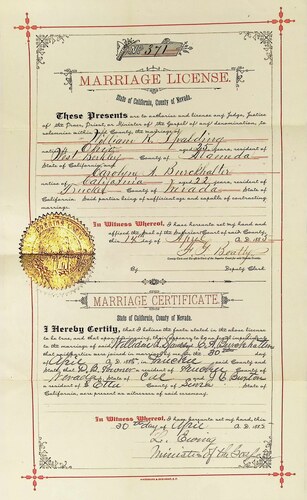 No. 371
MARRIAGE LICENSE.
State of California, County of Nevada.
These Presents are to authorize and license any Judge, Justice
of the Peace, Priest, or Minister of the Gospel of any denomination, to
solemnize within said County, the marriage of
William K. Spalding
native of Ohio aged 35 years, resident of
West Berkley County of Alameda
State of California, and
Carolyn A. Burckhalter
native of California aged 22 years, resident of
Truckee County of Nevada State of
California. Said parties being of sufficient age and capable of contracting
marriage.
In Witness Whereof, I have hereunto set my hand and
affixed the Seal of the Superior Court of said County,
this 14 day of April A. D. 1885
F. G. Beatty
By Deputy Clerk.
MARRIAGE CERTIFICATE.
State of California, County of Nevada.
I Hereby Certify, that I believe the facts stated in the above license
to be true, and that upon
to the marriage of said William K. Spaulding C. A. Burckhalter
that said parties were joined in marriage by me on the 30th day
of April A. D. 1885 in Truckee said County and
State; that a resident of Truckee County of
Nevada State of Cal and
a resident of County of State of
California, were present as witnesses of said ceremony.
In Witness Whereof, I have hereunto set my hand, this
30th day of April A. D. 1885
L. Ewing
Minister of the Gospel